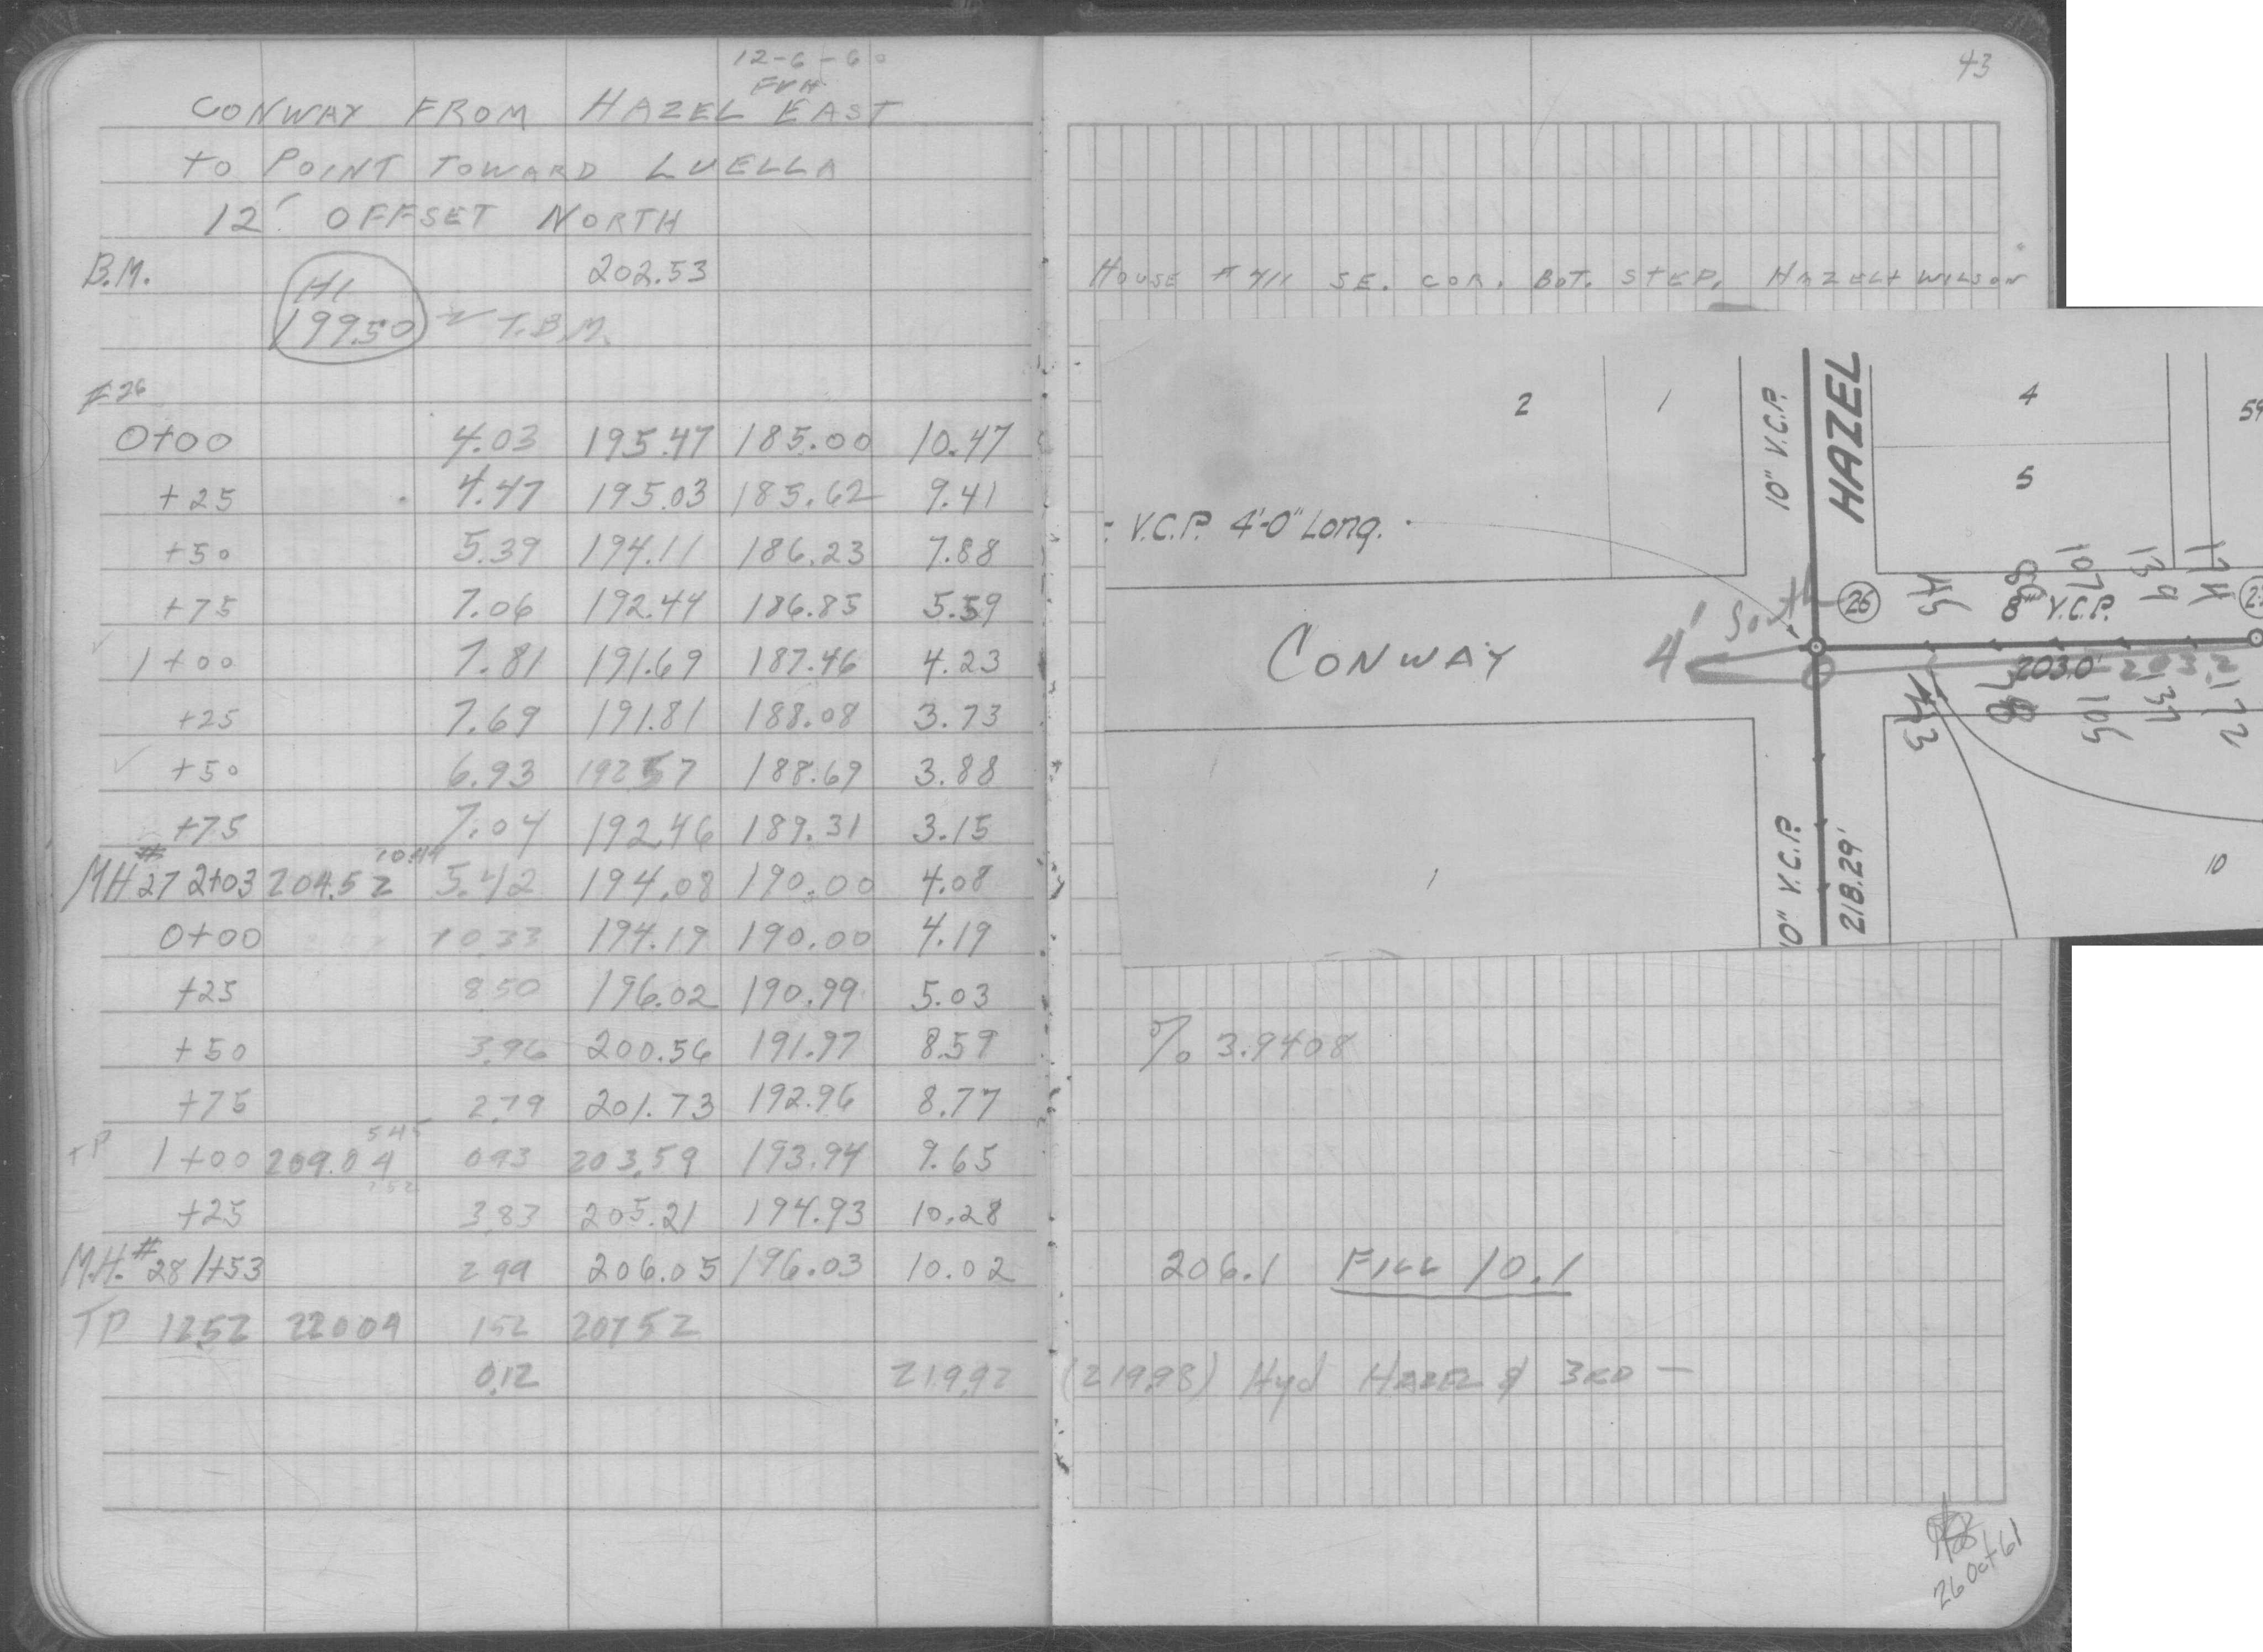 12-6-60
CONWAY FROM HAZEL EAST
TO POINT TOWARD LUELLA
12' OFFSET NORTH
B.M. 202.53
HI
199.50 T.B.M.
#26
0+00 4.03 195.47 185.00 10.47
+25 4.47 195.03 185.62 9.41
+50 5.39 194.11 186.23 7.88
+75 7.06 192.44 186.85 5.59
1+00 7.81 191.69 187.46 4.23
+25 7.69 191.81 188.08 3.73
+50 6.93 192.57 188.69 3.88
+75 7.04 192.46 189.31 3.15
10.44
MH #27 2+03 204.52 5.42 194.08 190.00 4.08
0+00 10.33 194.19 190.00 4.19
+25 8.50 196.02 190.99 5.03
+50 3.96 200.56 191.97 8.59
+75 2.79 201.73 192.96 8.77
5.45
TP 1+00 209.04 0.93 203.59 193.94 9.65
+25 3.83 205.21 194.93 10.28
M.H. #28 1+53 2.99 206.05 196.03 10.02
TP 12.52 220.04 1.52 207.52
0.12 219.92
43
HOUSE # 411 SE. COR. BOT. STEP. HAZEL + WILSON
2 1 10" V.C.P. HAZEL 4 59
5
V.C.P. 4'-0" Long.
4' South 26 45 88 107 139 174
8" V.C.P.
CONWAY
203.0' 203.2
43 105 137 172
1 10" V.C.P. 218.29' 10
% 3.9408
206.1 FILL 10.1
(219.98) Hyd HAZEL & 3RD —
26 Oct 61